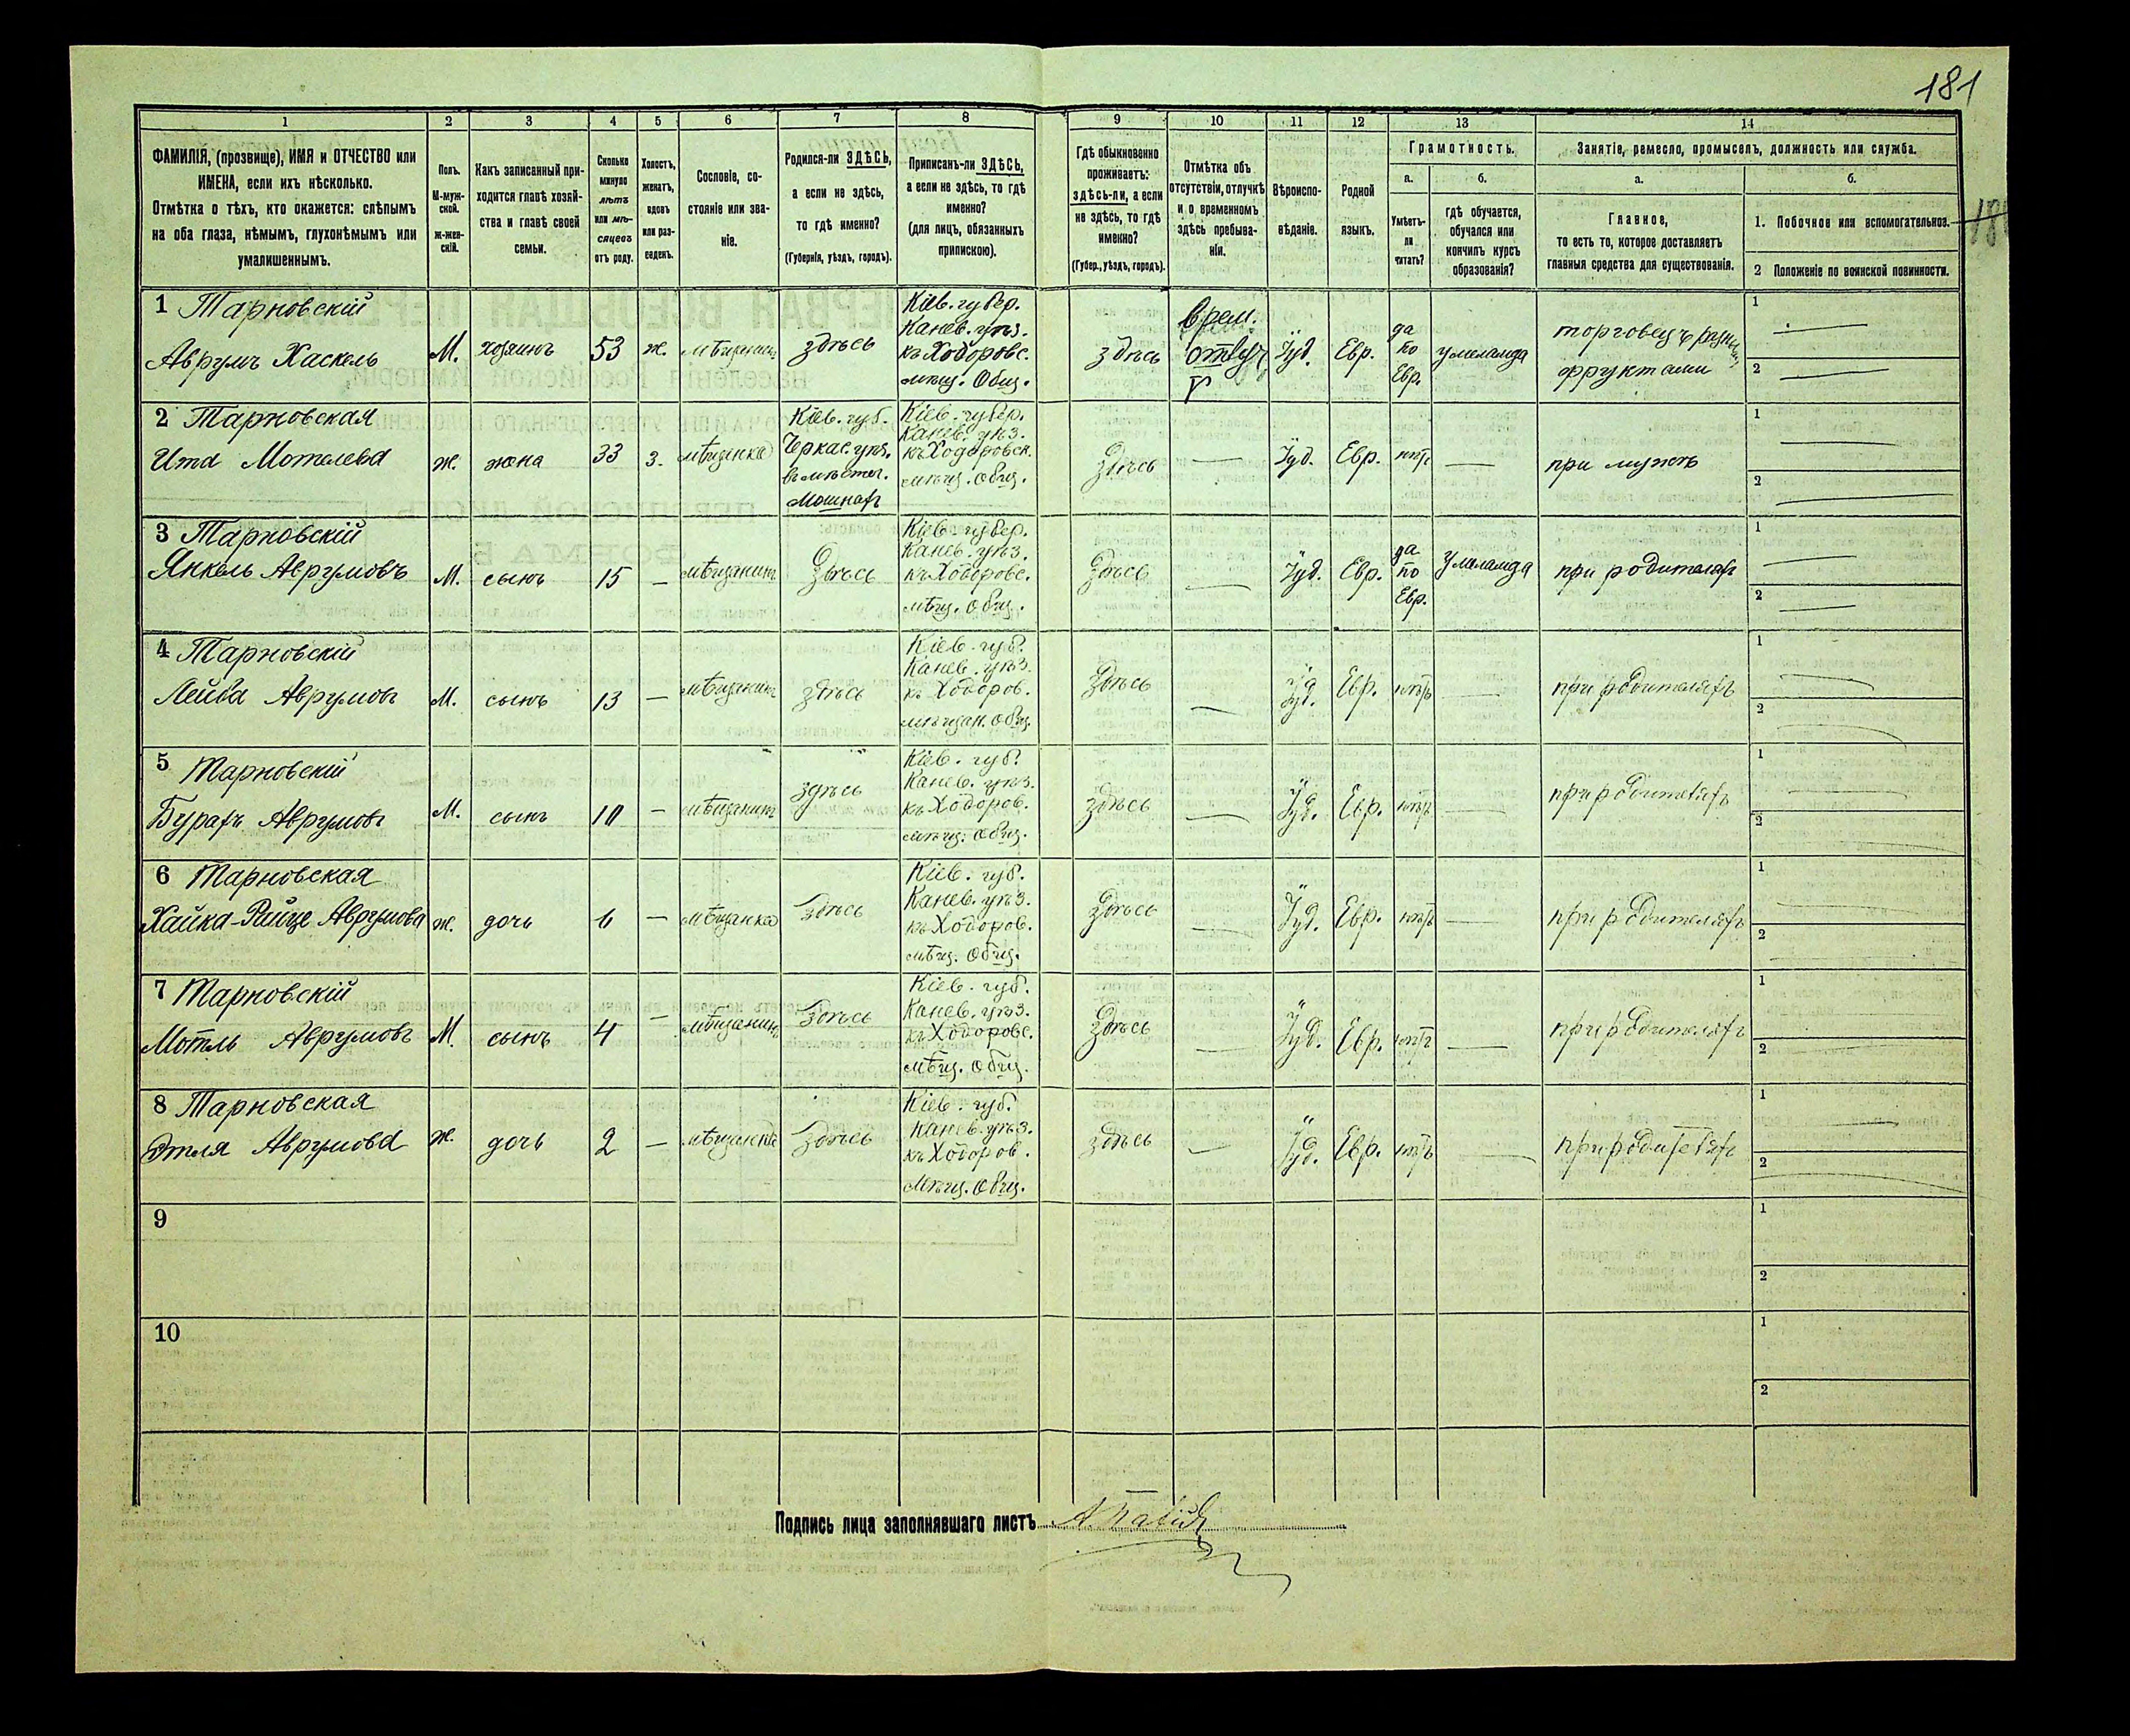 181
1 2 3 4 5 6 7 8 9 10 11 12 13 14
ФАМИЛІЯ, (прозвище), ИМЯ и ОТЧЕСТВО или
ИМЕНА, если ихъ нѣсколько.
Отмѣтка о тѣхъ, кто окажется: слѣпымъ
на оба глаза, нѣмымъ, глухонѣмымъ или
умалишеннымъ.
Полъ.
М-муж-
ской.
ж-жен-
скій.
Какъ записанный при-
ходится главѣ хозяй-
ства и главѣ своей
семьи.
Сколько
минуло
лѣтъ
или мѣ-
сяцевъ
отъ роду.
Холостъ,
женатъ,
вдовъ
или раз-
веденъ.
Сословіе, со-
стояніе или зва-
ніе.
Родился-ли ЗДѢСЬ,
а если не здѣсь,
то гдѣ именно?
(Губернія, уѣздъ, городъ).
Приписанъ-ли ЗДѢСЬ,
а если не здѣсь, то гдѣ
именно?
(для лицъ, обязанныхъ
припискою).
Гдѣ обыкновенно
проживаетъ:
здѣсь-ли, а если
не здѣсь, то гдѣ
именно?
(Губер., уѣздъ, городъ).
Отмѣтка объ
отсутствіи, отлучкѣ
и о временномъ
здѣсь пребыва-
ніи.
Вѣроиспо-
вѣданіе.
Родной
языкъ.
Грамотность.
а.
Умѣетъ-
ли
читать?
б.
гдѣ обучается,
обучался или
кончилъ курсъ
образованія?
Занятіе, ремесло, промыселъ, должность или служба.
а.
Главное,
то есть то, которое доставляетъ
главныя средства для существованія.
б.
1. Побочное или вспомогательное.
2 Положеніе по воинской повинности.
1 Тарновскій
Аврумъ Хаскель
М.
хозяинъ
53
ж.
мѣщанинъ
здѣсь
Кіев. губер.
Канев. уѣз.
къ Ходоровс.
мѣщ. Общ.
здѣсь
Врем.
отлуч
Іуд.
Евр.
да
по
Евр.
у меламда
торговецъ
фруктами
1
2
2 Тарновская
Ита Мотелева
ж.
жена
33
з.
мѣщанка
Кіев. губ.
Черкас. уѣз.
въ мѣстеч.
Мошнахъ
Кіев. губер.
Канев. уѣз.
къ Ходоровск.
мѣщ. общ.
здѣсь
—
Іуд.
Евр.
нѣтъ
—
при мужѣ
1
2
3 Тарновскій
Янкель Аврумовъ
М.
сынъ
15
—
мѣщанинъ
здѣсь
Кіев. губер.
Канев. уѣз.
къ Ходоровс.
мѣщ. общ.
здѣсь
—
Іуд.
Евр.
да
по
Евр.
у меламда
при родителяхъ
1
2
4 Тарновскій
Лейба Аврумовъ
М.
сынъ
13
—
мѣщанинъ
здѣсь
Кіев. губ.
Канев. уѣз.
къ Ходоров.
мѣщан. общ.
здѣсь
—
Іуд.
Евр.
нѣтъ
—
при родителяхъ
1
2
5 Тарновскій
Бурахъ Аврумовъ
М.
сынъ
10
—
мѣщанинъ
здѣсь
Кіев. губ.
Канев. уѣз.
къ Ходоров.
мѣщ. общ.
здѣсь
—
Іуд.
Евр.
нѣтъ
—
при родителяхъ
1
2
6 Тарновская
Хайка- Аврумова
ж.
дочь
6
—
мѣщанка
здѣсь
Кіев. губ.
Канев. уѣз.
къ Ходоров.
мѣщ. общ.
здѣсь
—
Іуд.
Евр.
нѣтъ
—
при родителяхъ
1
2
7 Тарновскій
Мотль Аврумовъ
М.
сынъ
4
—
мѣщанинъ
здѣсь
Кіев. губ.
Канев. уѣз.
къ Ходоровс.
мѣщ. общ.
здѣсь
—
Іуд.
Евр.
нѣтъ
—
при родителяхъ
1
2
8 Тарновская
Этля Аврумова
ж.
дочь
2
—
мѣщанка
здѣсь
Кіев. губ.
Канев. уѣз.
къ Ходоров.
мѣщ. общ.
здѣсь
—
Іуд.
Евр.
нѣтъ
—
при родителяхъ
1
2
9
1
2
10
1
2
Подпись лица заполнявшаго листъ